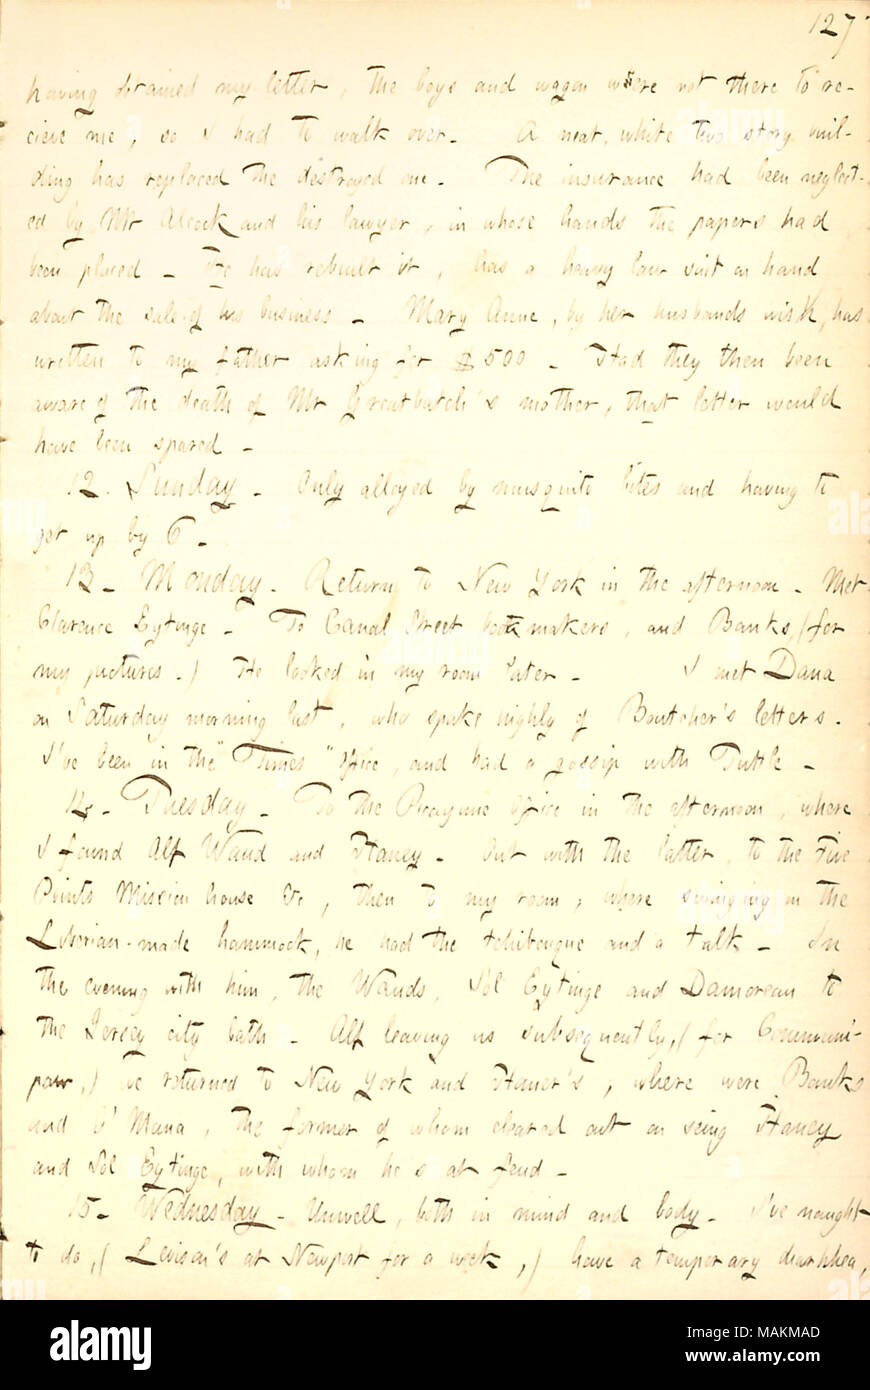 127
having obtained my letter, the boys and wagon were not there to re-
cieve me, so I had to walk over. A neat, white two story buil-
ding has replaced the destroyed one. The insurance had been neglect-
ed by Mr Alcock and his lawyer, in whose hands the papers had
been placed. He has rebuilt it, has a heavy law suit on hand
about the sale of his business. Mary Anne, by her husbands wish, has
written to my father asking for $500. Had they then been
aware of the death of Mr Greatbatch's mother, that letter would
have been spared.
12. Sunday. Only alloyed by musquito bites and having to
get up by 6.
13. Monday. Return to New York in the afternoon. Met
Clarence Eytinge. To Canal Street bootmakers, and Banks, (for
my pictures.) He looked in my room later. I met Dana
on Saturday morning last, who spoke highly of Boutcher's letters.
I've been in the "Times" Office, and had a gossip with Tuttle.
14. Tuesday. To the Picayune Office in the afternoon, where
I found Alf Waud and Haney. Out with the latter, to the Five
Points Mission house &c, then to my room, where swinging in the
Liberian-made hammock, he had the tchibouque and a talk. In
the evening with him, the Wauds, Sol Eytinge and Damoreau to
the Jersey city bath. Alf leaving us subsequently, (for Communi-
paw,) we returned to New York and Honer's, where were Banks
and O'Mana, the former of whom cleared out on seing Haney
and Sol Eytinge, with whom he's at feud.
15. Wednesday. Unwell, both in mind and body. I've naught
to do, (Levison's at Newport for a week,) have a temporary diarrhea,
alamy
Image ID: MAKMAD
www.alamy.com